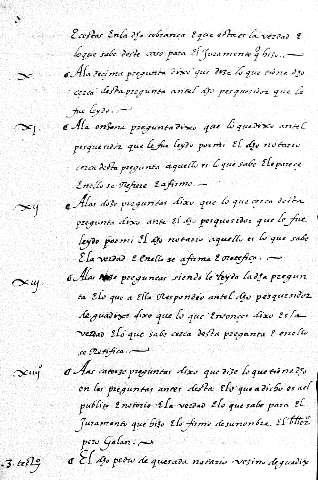 E costas En la dho cobrança E que esta es la verdad E
lo que sabe deste caso para El Juramento q hizo.
X. A la decima pregunta dixo que dize lo que tiene dho
cerca desta pregunta antel dho pesqueridor que le
fue leydo.
XI. A la onzena pregunta dixo que lo que dixo antel
pesqueridor que le fue leydo por mi El dho notario
cerca desta pregunta aquello es lo que sabe E le parece
En ello se Refiere E afirmo.
XII A las doze preguntas dixo que lo que cerca desta
pregunta dixo ante El dho pesqueridor que le fue
leydo por mi El dho notario aquello es lo que sabe
E la verdad E En ello se afirma E Retefica.
XIII. A las preguntas siendo le leyda la dha pregun
ta E lo que a Ella Respondio antel dho pesqueridor
de guadix dixo que lo que Entonces dixo Es la
verdad E lo que sabe cerca desta pregunta E en ello
se Retifica.
XIIII A las catorze preguntas dixo que dize lo que tiene dho
en las preguntas antes desta E lo que a dicho es asi
publico E notorio E la verdad E lo que sabe para El
Juramento que hizo E lo firmo de su nombre. El
pero Galan.
.3. testo. El dho pedro de quesada notario vezino de guadix